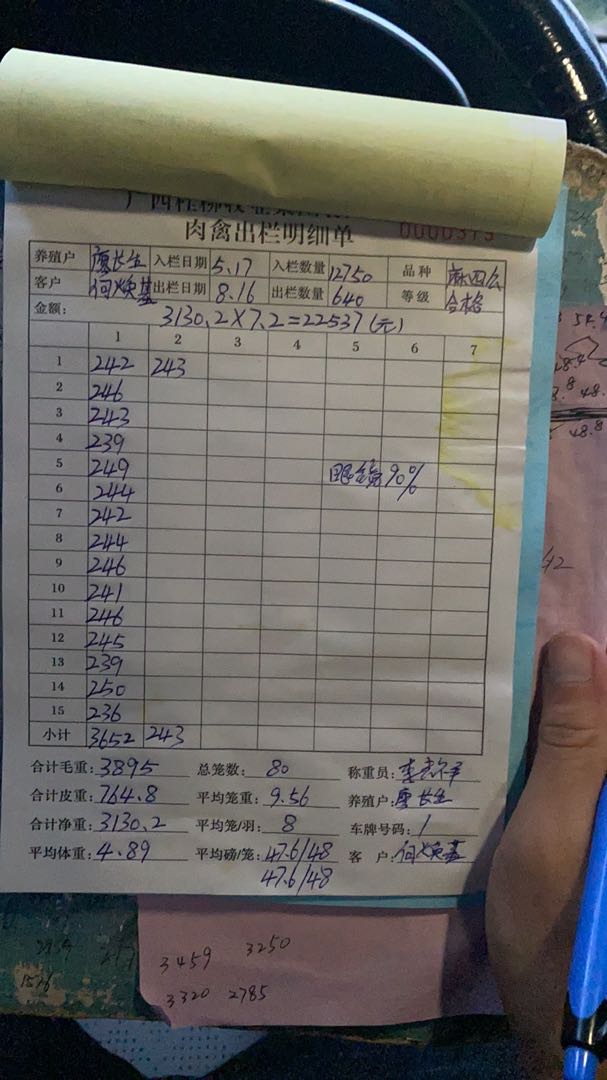 肉禽出栏明细单
养殖户 廖长生 入栏日期 5.17 入栏数量 12750 品种 麻四么
客户 何焕基 出栏日期 8.16 出栏数量 640 等级 合格
金额: 3130.2×7.2=22537(元)
1 2 3 4 5 6 7
1 242 243
2 246
3 243
4 239
5 249 90%
6 244
7 242
8 244
9 246
10 241
11 246
12 245
13 239
14 250
15 236
小计 3652 243
合计毛重: 3895 总笼数: 80 称重员:
合计皮重: 764.8 平均笼重: 9.56 养殖户: 廖长生
合计净重: 3130.2 平均笼/羽: 8 车牌号码: 1
平均体重: 4.89 平均磅/笼: 47.6/48 客户: 何焕基
47.6/48
3459 3250
3320 2785